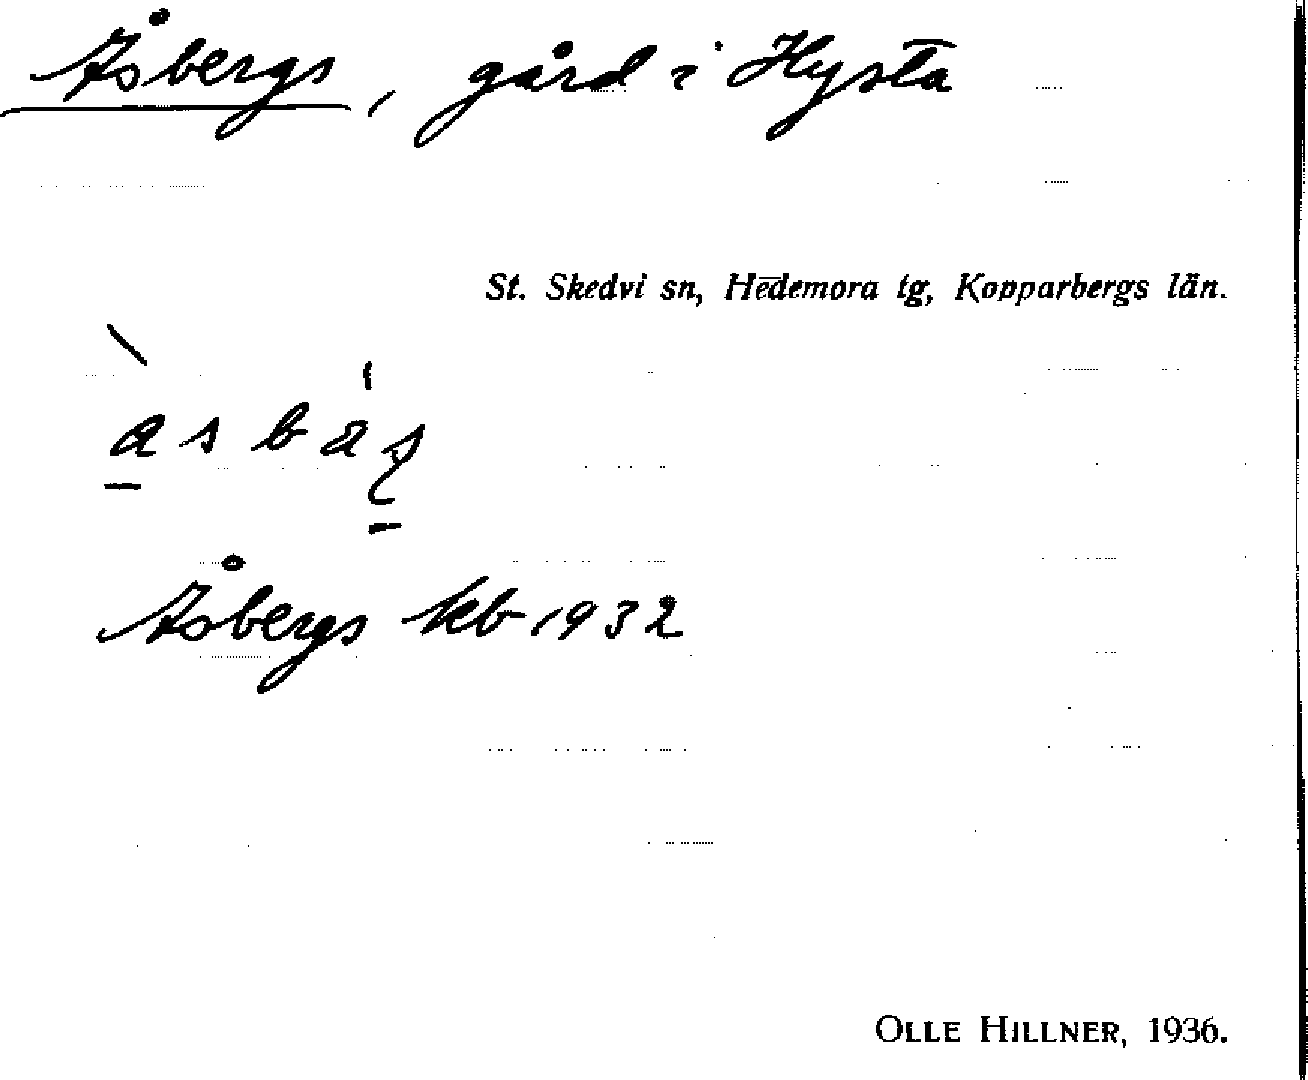 Åsbergs, gård i Hysta
St. Skedvi sn, Hedemora tg, Kopparbergs län.
Åsbergs kb 1932
OLLE HILLNER, 1936.